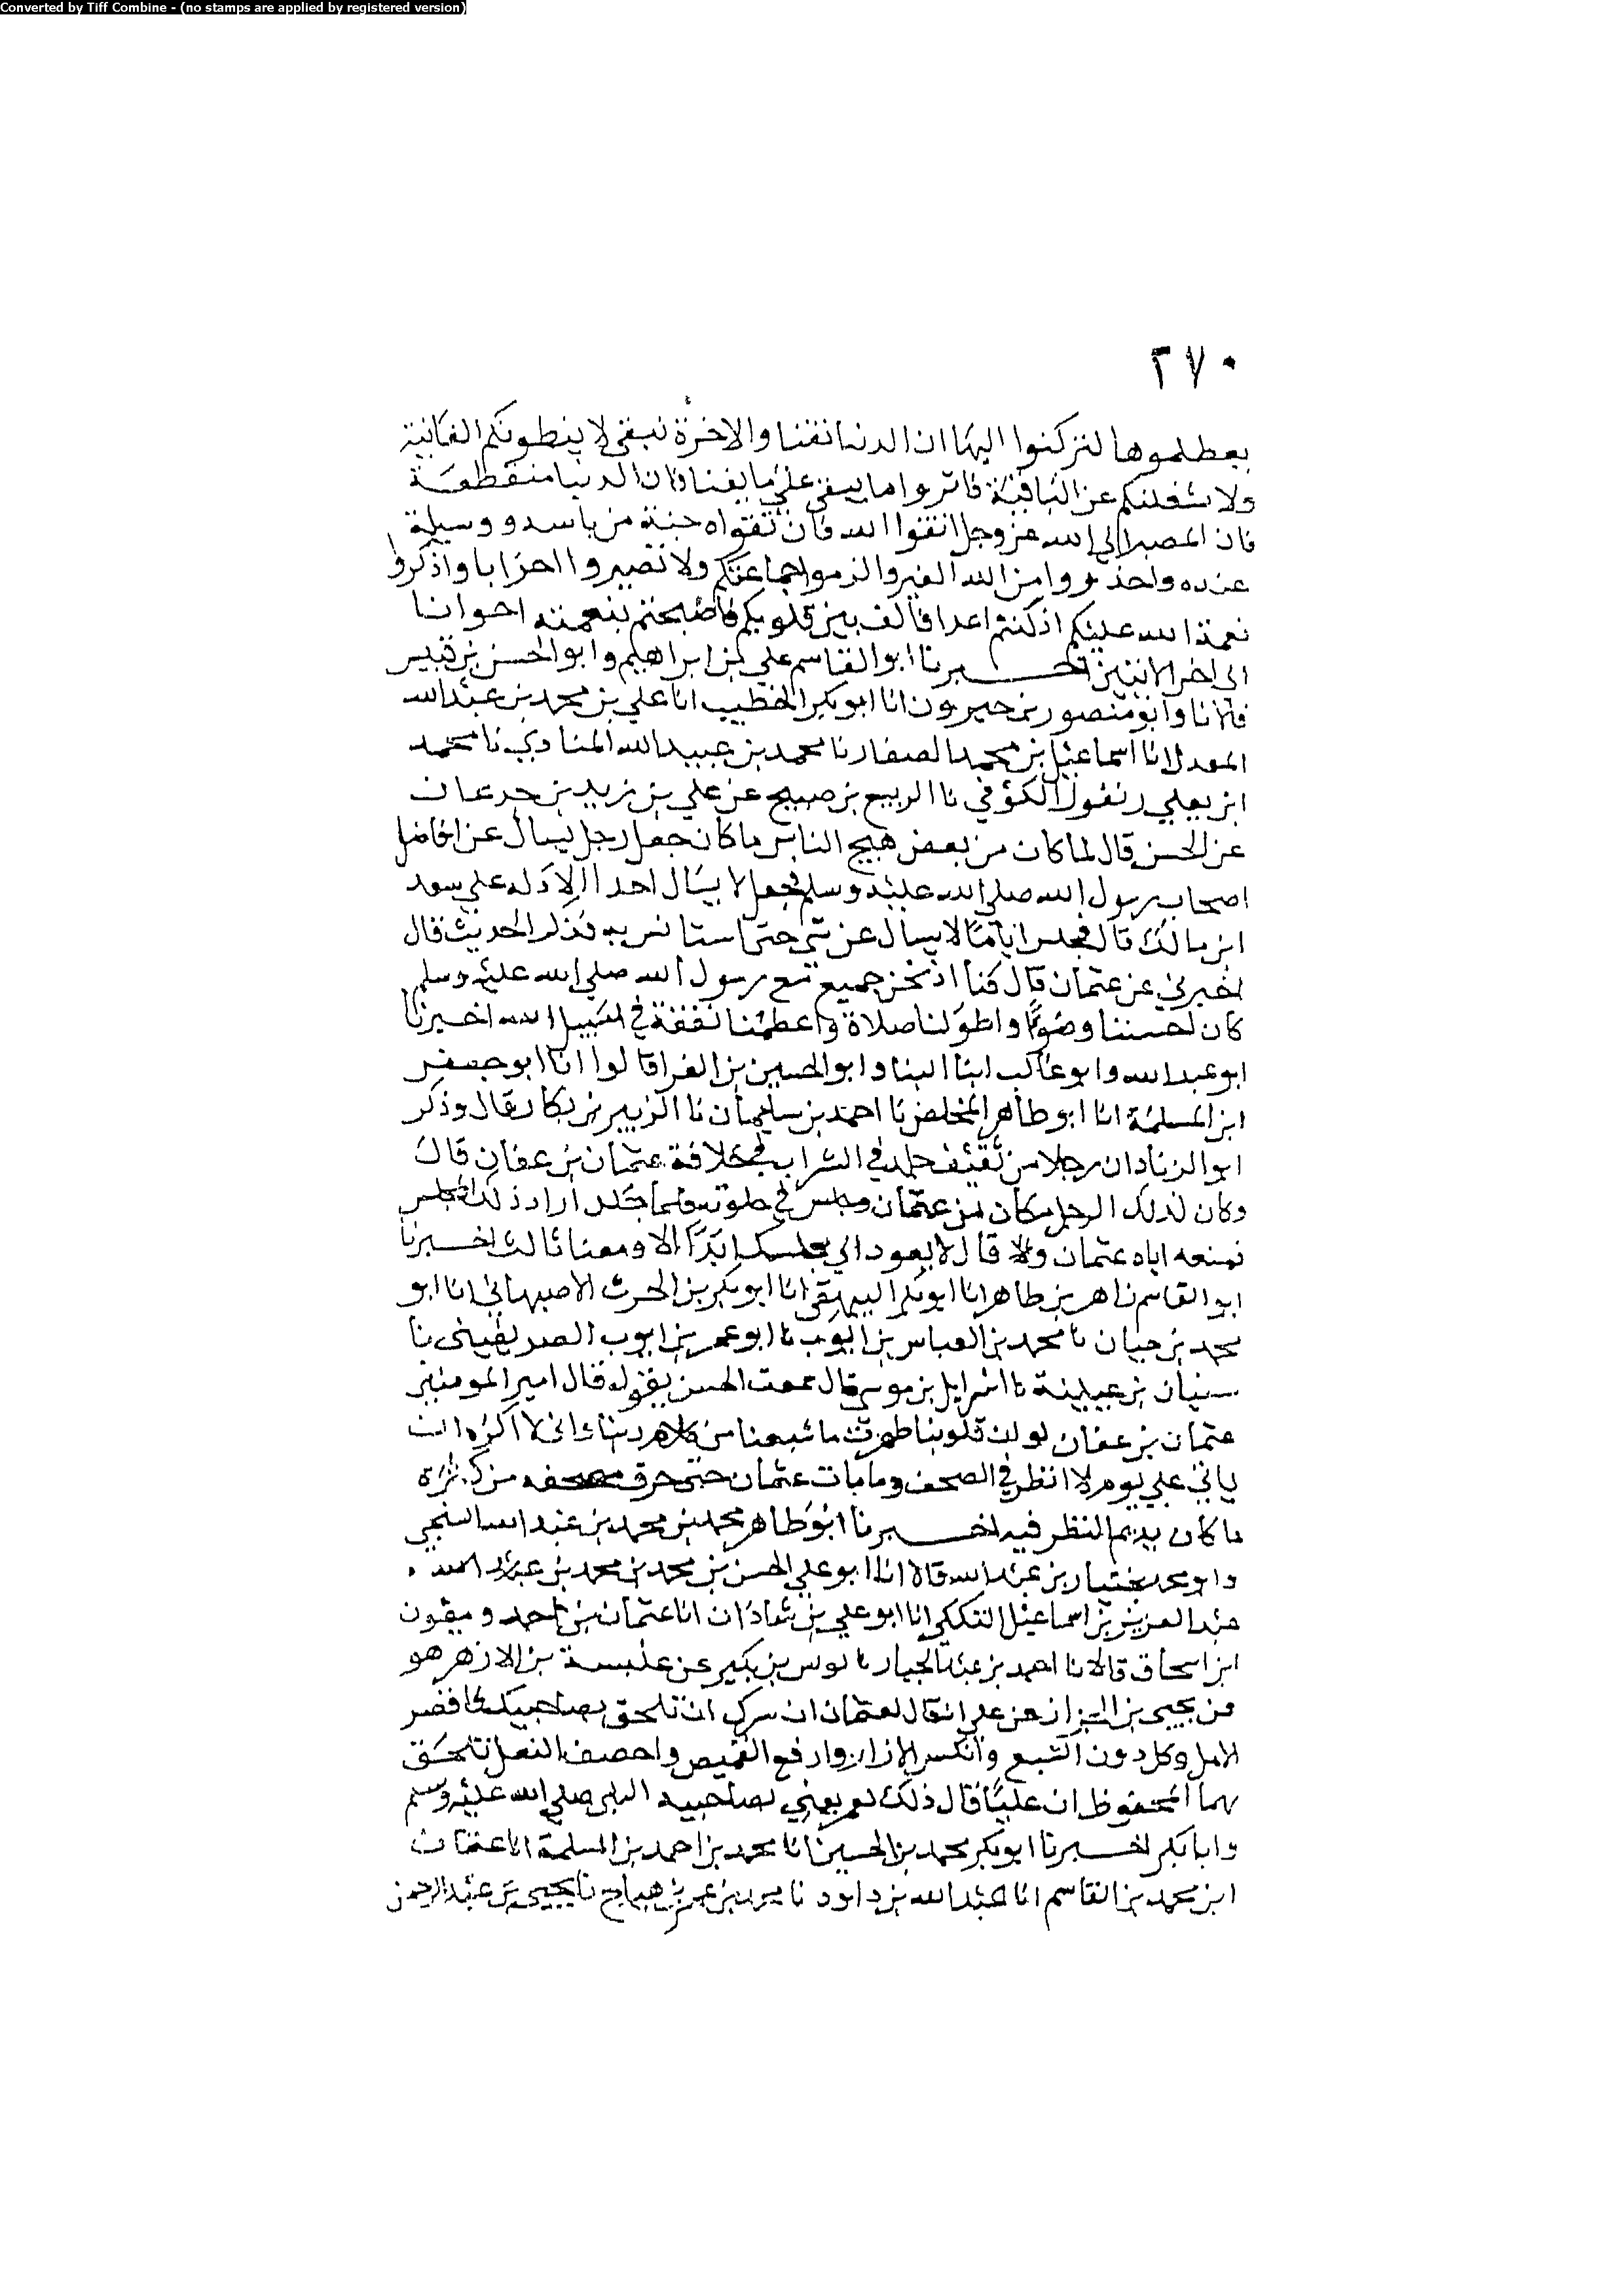 Converted by Tiff Combine - (no stamps are applied by registered version)
٢٧٠
يعطلموها لتركنوا اليها ان الدنيا تفنا والاخرة تبقى لا يبطونكم الفانية
ولا تشغلنكم عن الباقية فاثروا ما يبقى على ما يفنا فان الدنيا منقطعة
فان المصير الى الله عز وجل اتقوا الله فان تقواه جنة من باسه ووسيلة
عنده واحذروا من الله الغير والزموا جماعتكم ولا تصيروا احزابا واذكروا
نعمة الله عليكم اذ كنتم اعدا فالف بين قلوبكم فاصبحتم بنعمته اخوانا
الى اخر الايتين اخبرنا ابو القاسم علي بن ابراهيم وابو الحسن بن قبيس
قالا نا وابو منصور بن خيرون انا ابو بكر الخطيب انا علي بن محمد بن عبد الله
المعدل انا اسماعيل بن محمد الصفار نا محمد بن عبيد الله المنادي نا محمد
ابن يعلي زنقول الكوفي نا الربيع بن صبيح عن علي بن زيد بن جدعان
عن الحسن قال لما كان من بعض هيج الناس ما كان جعل رجل يسال عن افاضل
اصحاب رسول الله صلى الله عليه وسلم فجعل لا يسال احدا الا دله على سعد
ابن مالك قال فجلس اياما لا يسال عن شي حتى استانس به فذكر الحديث قال
اخبرني عن عثمان قال كنا اذ نحن جميع مع رسول الله صلى الله عليه وسلم
كان احسننا وضوا واطولنا صلاة واعظمنا نفقة في سبيل الله اخبرنا
ابو عبد الله وابو غالب ابنا البنا وابو الحسين بن الفرا قالوا انا ابو جعفر
ابن المسلمة انا ابو طاهر المخلص نا احمد بن سليمان نا الزبير بن بكار قال وذكر
ابو الزناد ان رجلا من ثقيف جلد في الشراب في خلافة عثمان بن عفان قال
وكان لذلك الرجل مكان من عثمان ومجلس في خلوته فلما جلد اراد ذلك المجلس
فمنعه اياه عثمان وقال لا يعود الي مجلسك ابدا الا ومعنا ثالث اخبرنا
ابو القاسم زاهر بن طاهر انا ابو بكر البيهقي انا ابو بكر بن الحرث الاصبهاني انا ابو
محمد بن حيان نا محمد بن العباس بن ايوب نا ابو عمر بن ايوب الصريفيني نا
سفيان بن عيينة نا اسرايل بن موسى قال سمعت الحسن يقول قال امير المومنين
عثمان بن عفان لو ان قلوبنا طهرت ما شبعنا من كلام ربنا واني لا اكره ان
ياتي علي يوم لا انظر في الصحف وما مات عثمان حتى خرق مصحفه من كثرة
ما كان يديم النظر فيه اخبرنا ابو طاهر محمد بن محمد بن عبد الله السنجي
وابو محمد بختيار بن عبد الله قالا انا ابو علي الحسن بن محمد بن محمد بن عبد الله
عبد العزيز بن اسماعيل التككي انا ابو علي بن شاذان انا عثمان بن احمد وميمون
ابن اسحاق قالا نا احمد بن عبد الجبار نا يونس بن بكير عن عنبسة بن الازهر هو
عن يحيى بن الجزار عن علي انه قال لعثمان ان سرك ان تلحق بصاحبيك فاقصر
الامل وكل دون الشبع وانكس الازار وارفع القميص واخصف النعل تلحق
بهما المحفوظ ان عليا قال ذلك لعمر يعني بصاحبيه النبي صلى الله عليه وسلم
وابا بكر اخبرنا ابو بكر محمد بن الحسين انا محمد بن احمد بن المسلمة انا عثمان
ابن محمد بن القاسم انا عبد الله بن داود نا بن عمر بن هياج نا يحيى بن عبد الرحمن